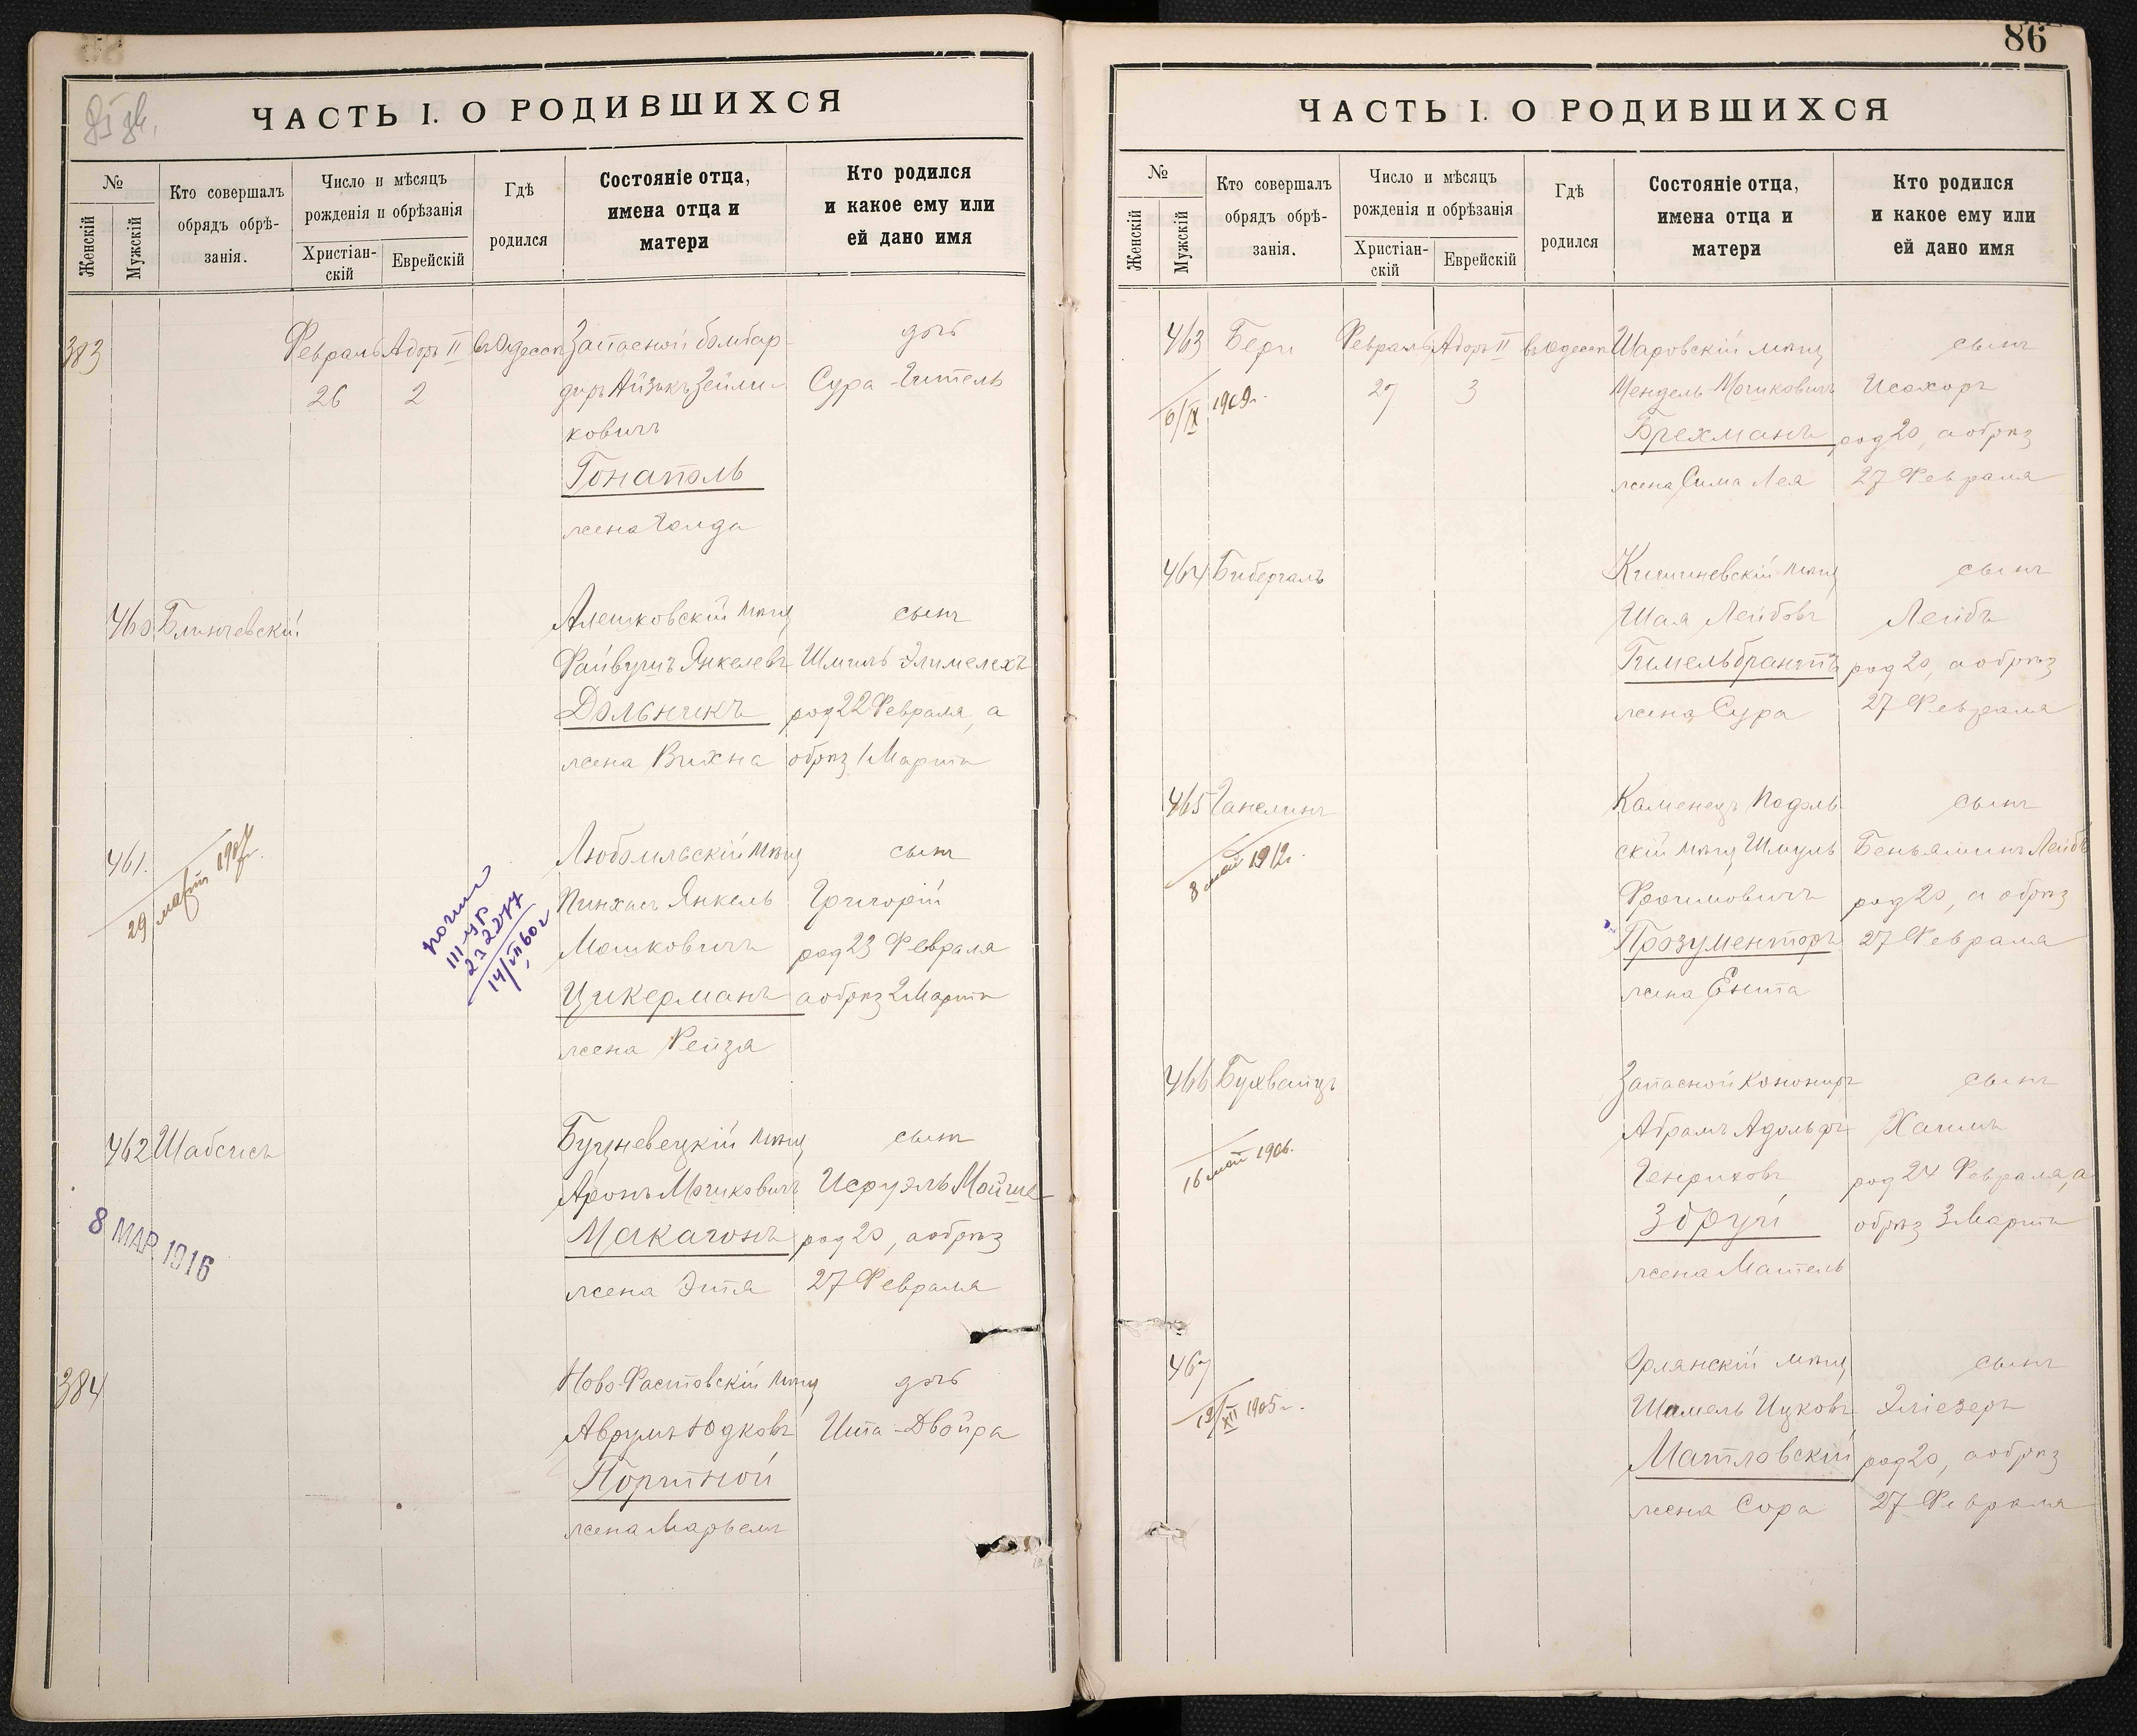 ЧАСТЬ I. О РОДИВШИХСЯ
№
Женскій
Мужскій
Кто совершалъ
обрядъ обрѣ-
занія.
Число и мѣсяцъ
рожденія и обрѣзанія
Христіан-
скій
Еврейскій
Гдѣ
родился
Состояніе отца,
имена отца и
матери
Кто родился
и какое ему или
ей дано имя
383
Февраль Адоръ II въ Одессѣ Запасной бомбар-
дочь
26 2
диръ Айзикъ Зейли-
Сура-Гитель
ковичъ
Гонаполь
жена Голда
460 Блинчевскій
Алешковскій мѣщ
сынъ
Файвушъ Янкелевъ Шмиль Элимелехъ
Дольникъ род 22 Февраля, а
жена Вихна обрѣз 1 Марта
461.
29 март 1907г.
Любомльскій мѣщ
сынъ
Пинхасъ Янкель
Григорій
Мошковичъ
род 23 Февраля
Цукерманъ а обрѣз 2 Марта
жена Рейза
462 Шабсисъ
Бушневецкій мѣщ
сынъ
Аронъ Мошковичъ Исруэль Мойше
Макагонъ род 20, а обрѣз
жена Этя 27 Февраля
8 МАР. 1916
384
Ново-Фастовскій мѣщ
дочь
Аврумъ Юдковъ Ита-Двойра
Портной
жена Марьемъ
86
ЧАСТЬ I. О РОДИВШИХСЯ
№
Женскій
Мужскій
Кто совершалъ
обрядъ обрѣ-
занія.
Число и мѣсяцъ
рожденія и обрѣзанія
Христіан-
скій
Еврейскій
Гдѣ
родился
Состояніе отца,
имена отца и
матери
Кто родился
и какое ему или
ей дано имя
463 Бери Февраль Адоръ II въ Одессѣ Шаровскій мѣщ
сынъ
6/IX 1909г.
27 3
Мендель Мошковичъ Исохоръ
Брехманъ род 20, а обрѣз
жена Сима Лея 27 Февраля
464 Бибергалъ
Кишиневскій мѣщ
сынъ
Шая Лейбовъ Лейбъ
Гимельбрантъ род 20, а обрѣз
жена Сура 27 Февраля
465 Ганелинъ
8 май 1912г.
Каменецъ Подоль-
сынъ
скій мѣщ Шмуль Беньяминъ Лейбъ
Фроимовичъ род 20, а обрѣз
Прозументоръ 27 Февраля
жена Ента
466 Бухвайцъ
16 май 1906.
Запасной Конониръ
сынъ
Абрамъ Адольфъ Хаимъ
Генриховъ род 24 Февраля, а
Збруй обрѣз 3 Марта
жена Матель
467
12/XII 1905г.
Орлянскій мѣщ
сынъ
Шамель Ицковъ Эліезеръ
Матловскій род 20, а обрѣз
жена Сора 27 Февраля